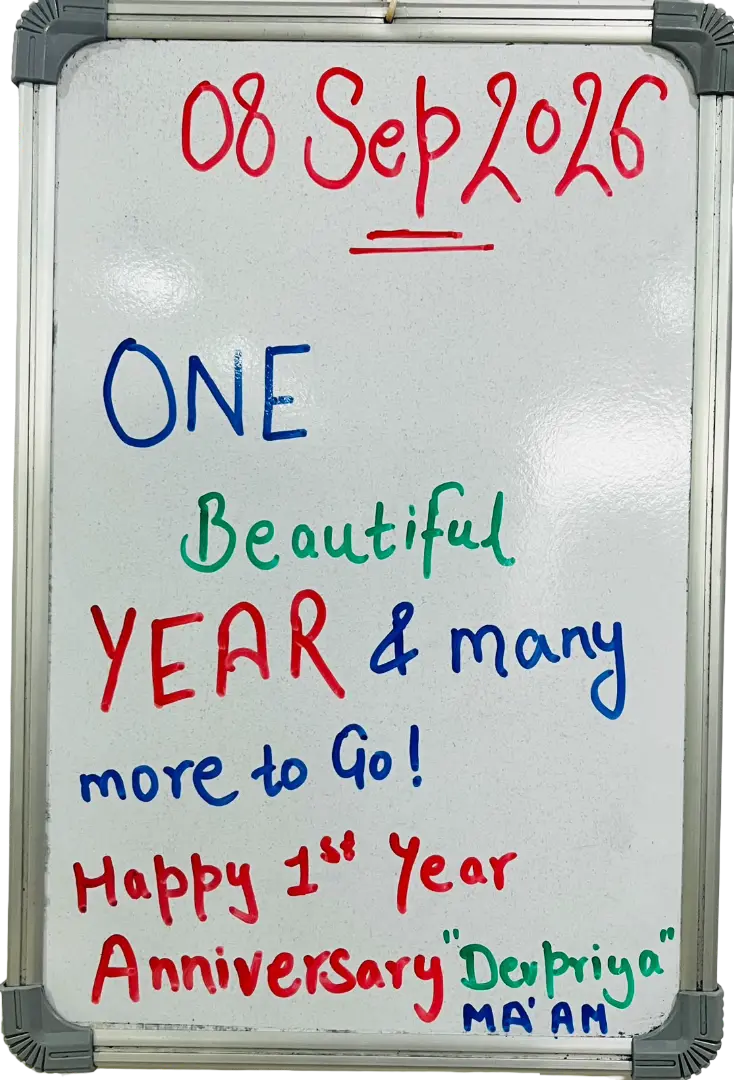 08 Sep 2026
ONE
Beautiful
YEAR & many
more to Go!
Happy 1st Year
Anniversary "Devpriya"
MA'AM